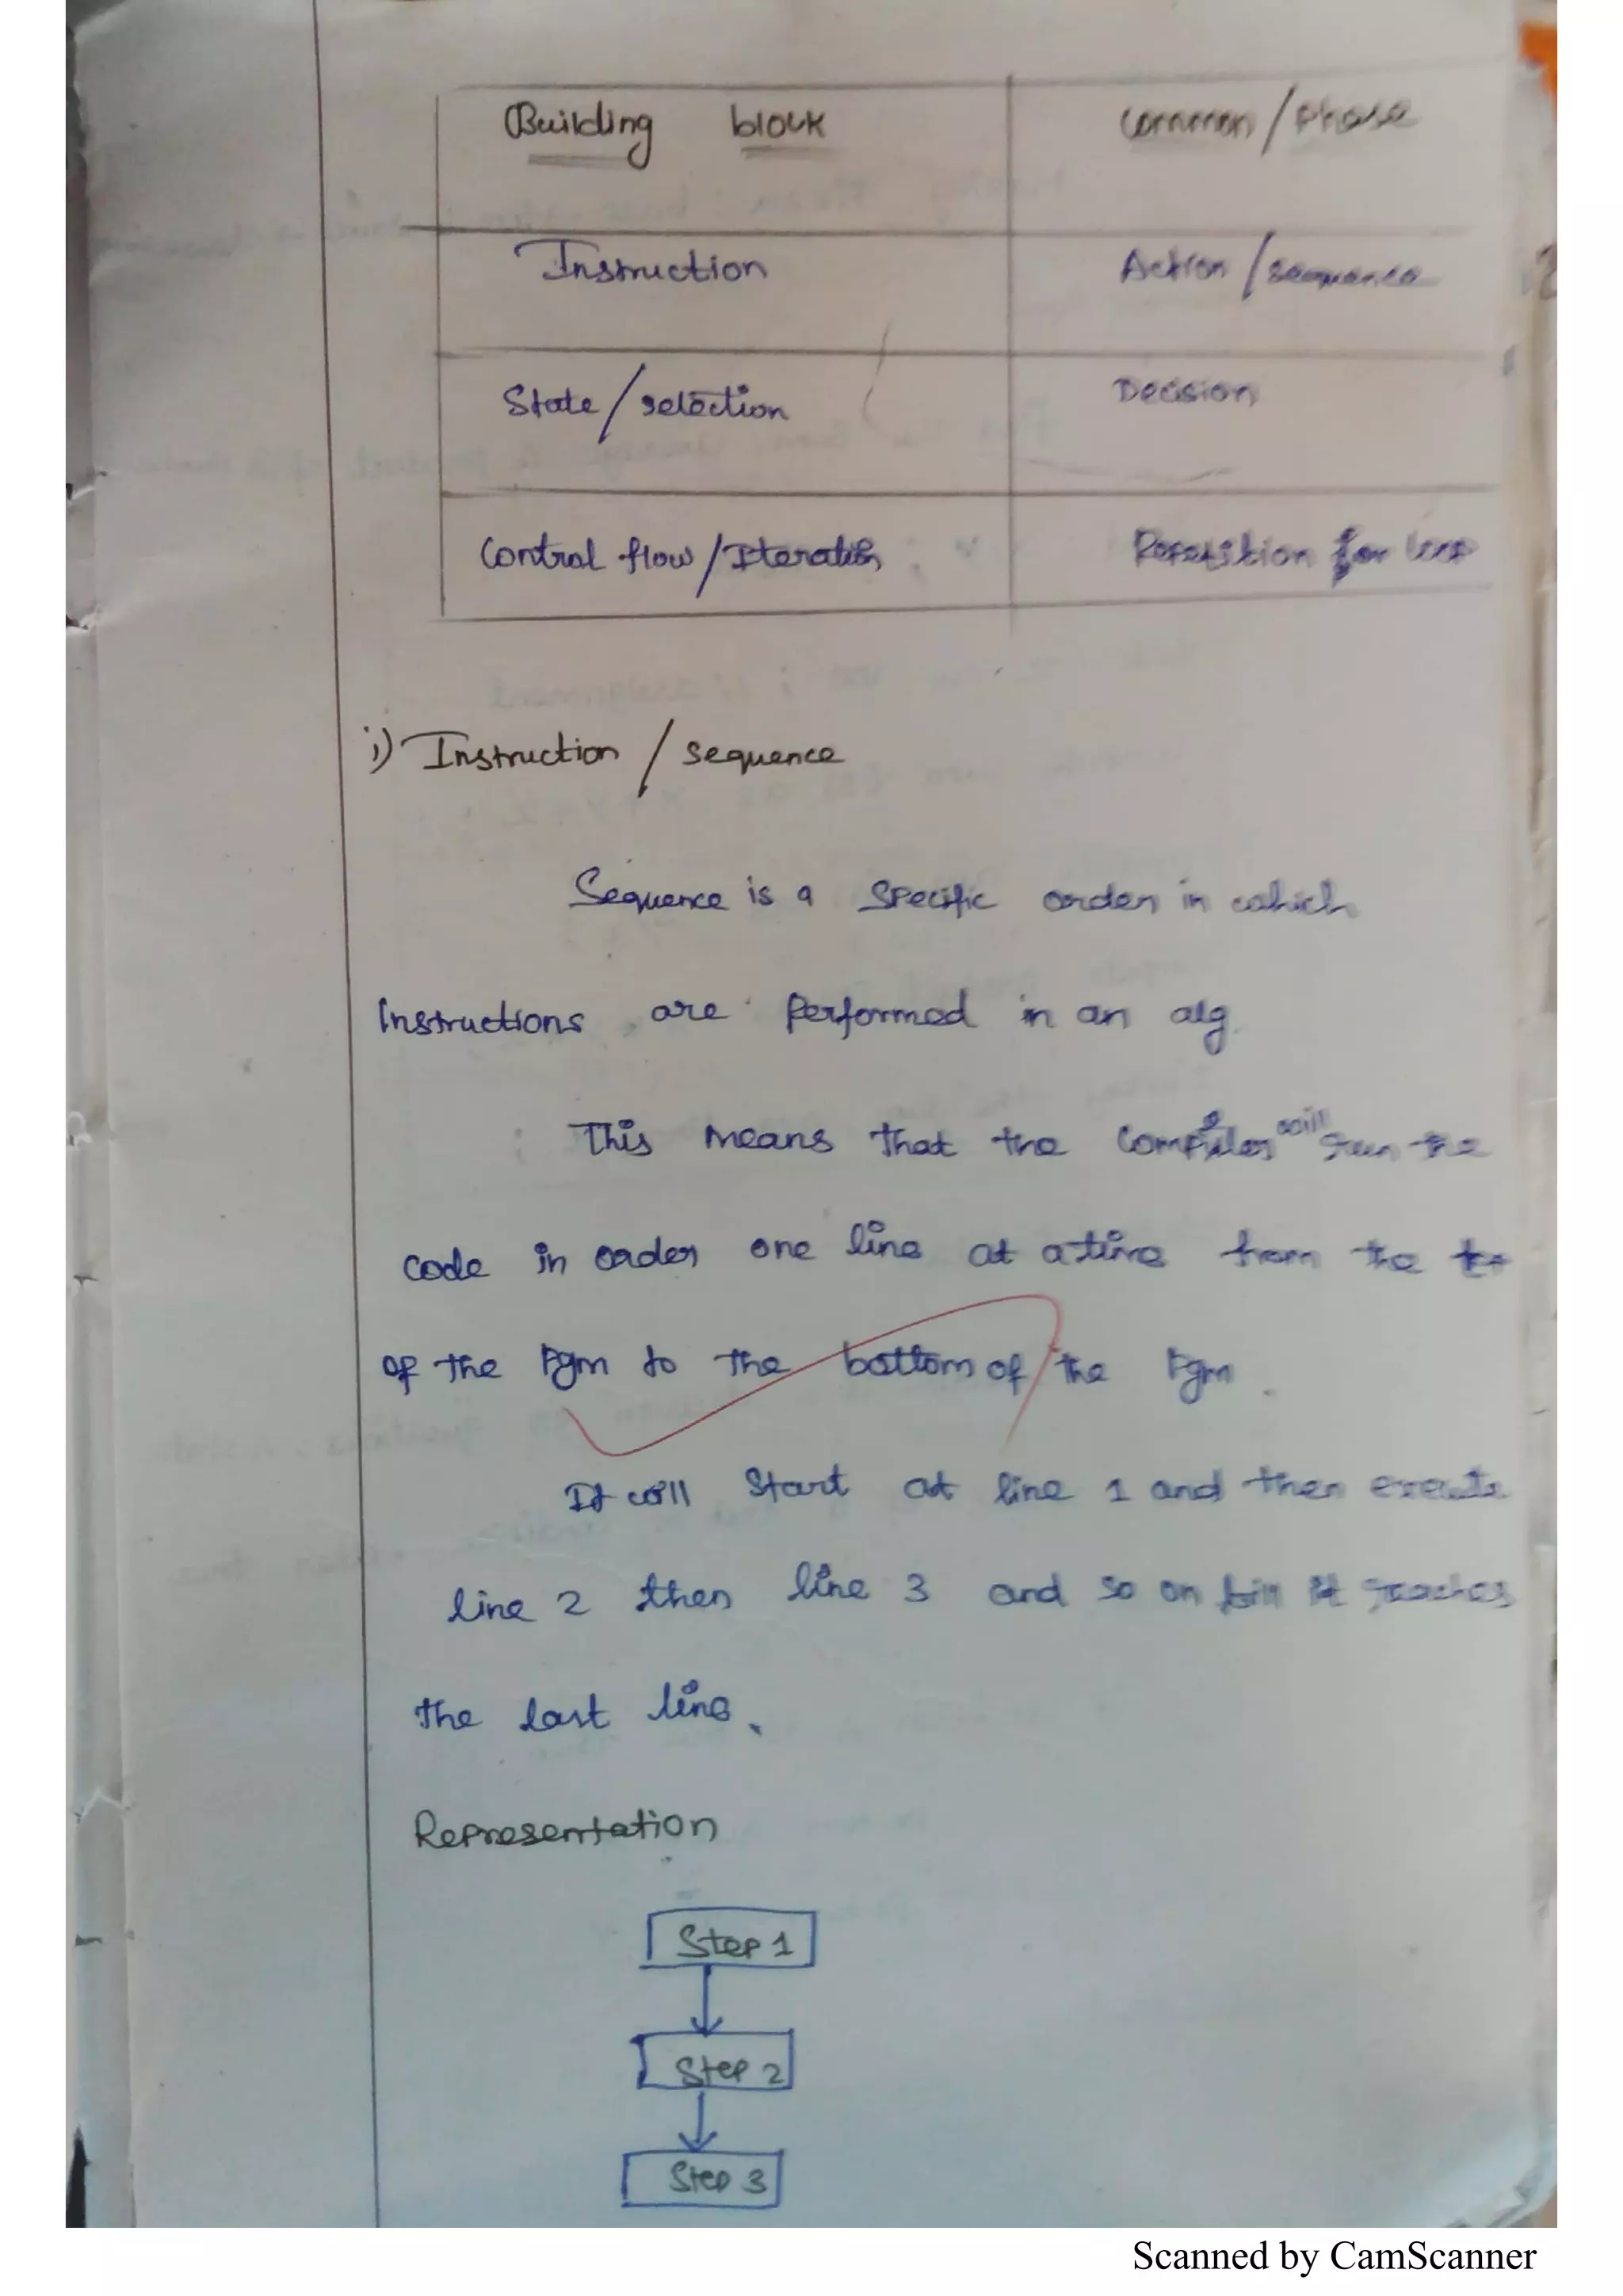 Building block Common/Phase
Instruction Action/sequence
State/selection Decision
Control flow/Iteration Repetition for loop
i) Instruction / sequence
Sequence is a specific order in which
instructions are performed in an alg.
This means that the compiler will run the
code in order one line at a time from the
of the Pgm to the bottom of the Pgm.
It will start at line 1 and then execute
line 2 then line 3 and so on it reaches
the last line.
Representation
Step 1
Step 2
Step 3
Scanned by CamScanner